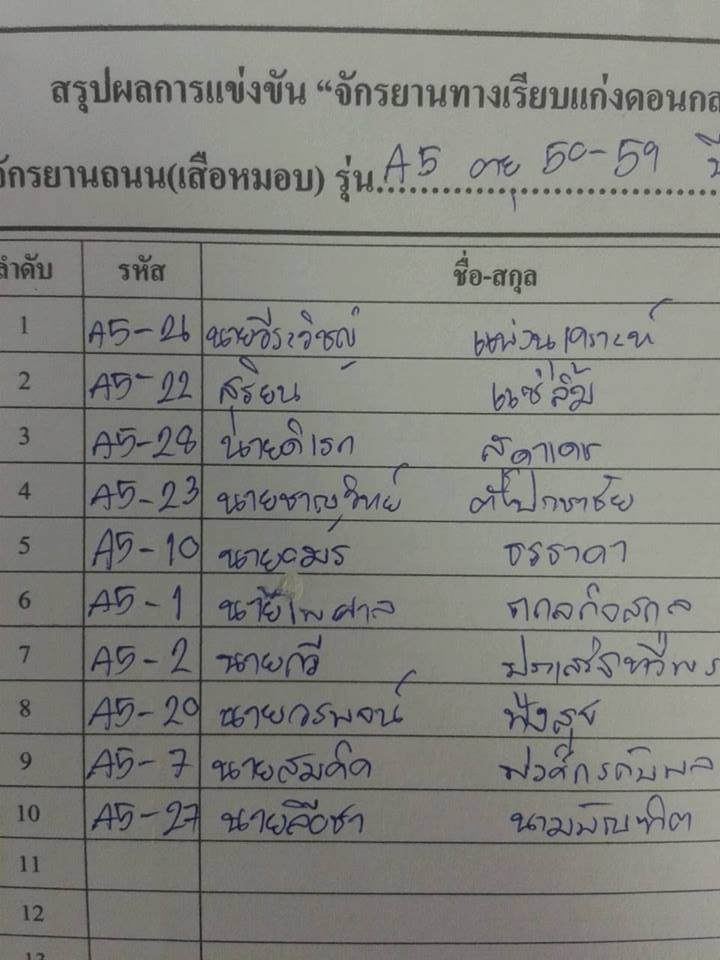 สรุปผลการแข่งขัน “จักรยานทางเรียบแก่งดอนกล
จักรยานถนน(เสือหมอบ) รุ่น. A5 อายุ 50-59 ปี
ลำดับ รหัส ชื่อ-สกุล
1 A5-26 นายวีระวิชญ์
2 A5-22 สุริยน แซ่ลิ้ม
3 A5-28 นายดิเรก
4 A5-23 นายชาญวิทย์
5 A5-10 นายอมร ธรธาดา
6 A5-1 นายไพศาล
7 A5-2 นายกวี
8 A5-20 นายวรพจน์ ฟังสุข
9 A5-7 นายสมคิด
10 A5-27 นายลือชา นามบัณฑิต
11
12
13